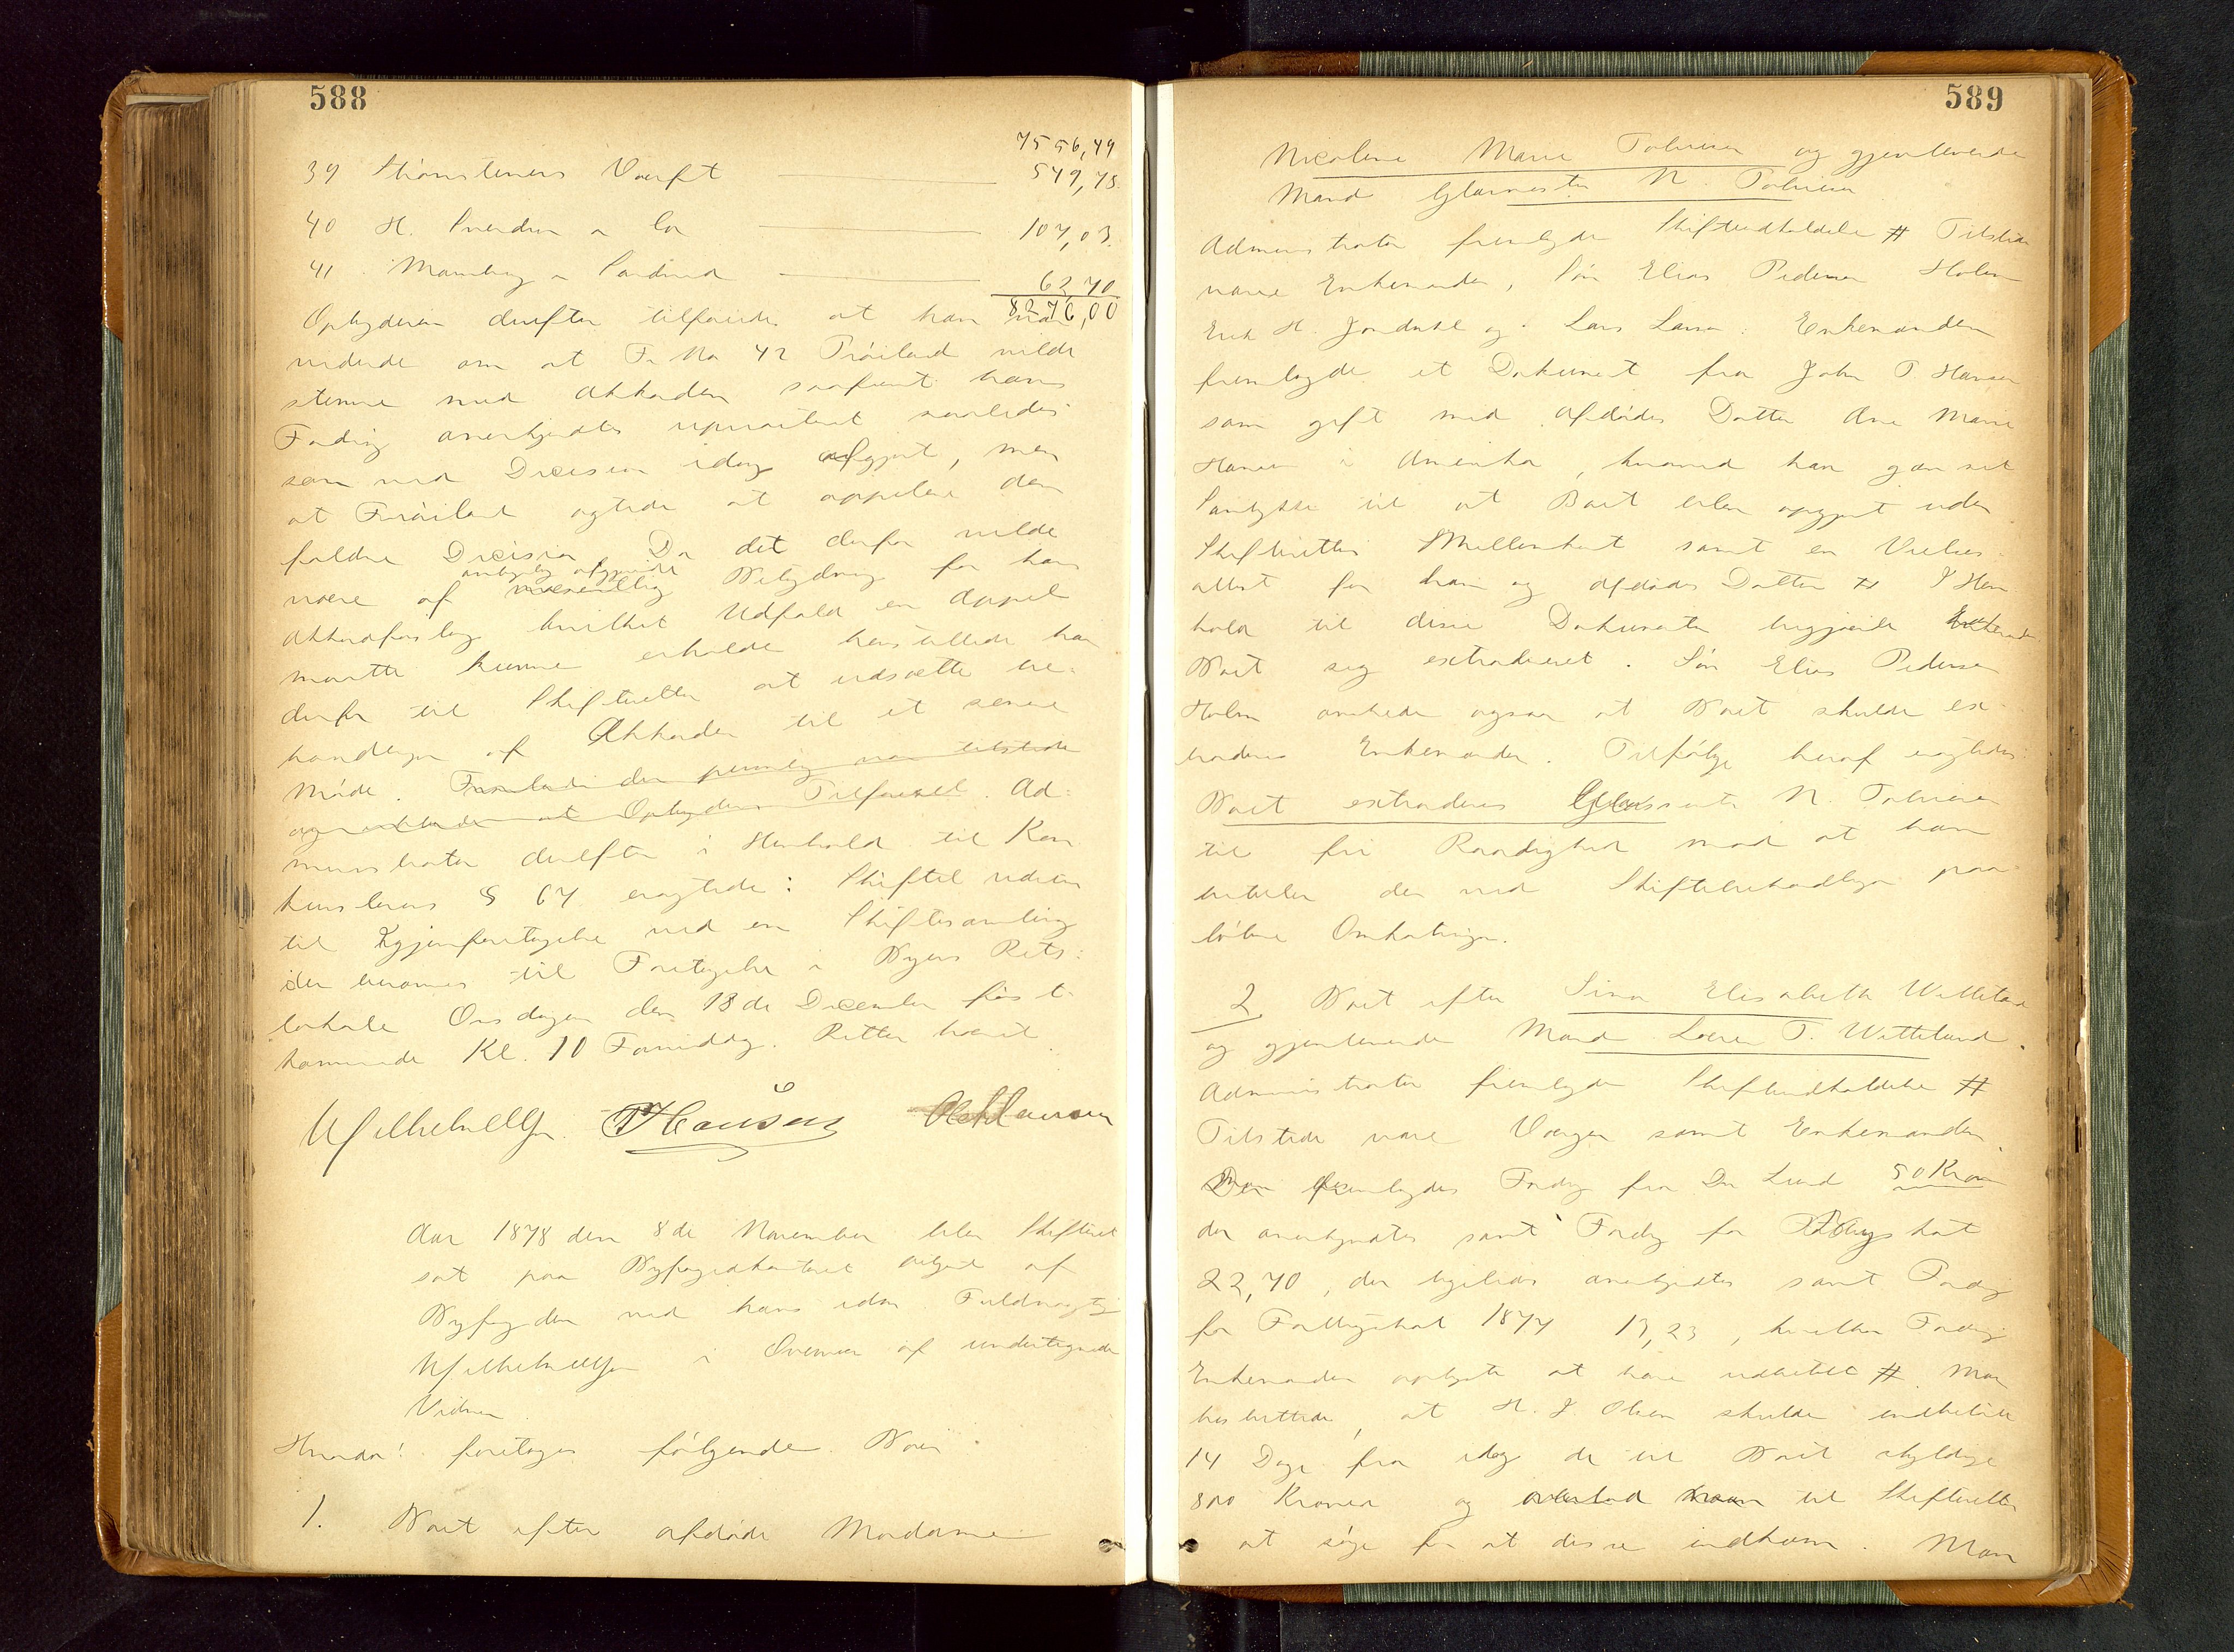 588
7556,49
39 Strømsteens Værft 549,78.
40 H. Sverdrup & Co 107,03.
41 Maanberg & Sandved 62,70
8276,00
Opbyderen derefter tilføiede at han var
vidende om at Fr. No 42 Frøiland vilde
stemme mod Akkorden saafremt hans
Fordring anerkjendtes uprioritert saaledes
som ved Decision idag afgjort, men
at Frøiland agtede at appellere den
faldne Decision. Da det derfor vilde
være af væsentlig Betydning for hans
Akkordforslag hvilket Udfald en Appel
maatte kunne erholde henstillede han
derfor til Skifteretten at udsætte be-
handlingen af Akkorden til et senere
Møde. Forsamlede der
og Opbyderens Tilførsel. Ad-
ministrator derefter i Henhold til Kon
kurslovens § 67 eragtede: Skiftet udsættes
til Gjenforetagelse ved en Skiftesamling
der berammes til Foretagelse i Byens Rets-
lokale Onsdagen den 18de December først-
kommende Kl. 10 Formiddag. Retten hævet.
W Hansen
Aar 1878 den 8de November blev Skifteret
sat paa Byfogedkontoret betjent af
Byfogden ved hans edsv. Fuldmægtig
i Overvær af undertegnede
Vidner
Hvorda! foretoges følgende Boer
1. Boet efter afdøde Madame
589
Nicoline Marie Tobiesen og gjenlevende
Mand Glarmester N. Tobiesen
Administrator fremlagde Skifteindkaldelse # Tilstede
vare Enkemanden, Søn Elias Pedersen Holm
Erik H. Jondahl og Lars Larsen: Enkemanden
fremlagde et Dokument fra John P Hansen
som gift med Afdødes Datter Ane Marie
Hansen i Amerika, hvorved han gav sit
Samtykke til at Boet blev opgjort uden
Skifterettens Mellemkomst samt en Vielses-
attest for ham og afdødes Datter # I Hen
hold til disse Dokumenter begjærede
Boet sig extraderet. Søn Elias Pedersen
Holm ønskede ogsaa at Boet skulde ex-
traderes Enkemanden. Tilfølge heraf eragtedes:
Boet extraderes Glarmester N. Tobiesen
til fri Raadighed mod at han
betaler de ved Skiftebehandlingen paa-
løbne Omkostninger.
2 Boet efter Sina Elisabeth Witteland
og gjenlevende Mand T. Witteland.
Administrator fremlagde Skifteindkaldelse #
Tilstede vare Værgen samt Enkemanden.
Der fremlagdes Fordring fra Dr Lund 50 Kroner
der anerkjendtes samt Fordring for Byskat
22,70, der ligeledes anerkjendtes samt Fordring
for Fattigskat 1877 13,23, hvilken Fordring
Enkemanden oplyste at have udbetalt # Man
besluttede, at H. J. Olsen skulde indbetale
14 Dage fra idag de til Boet skyldige
800 Kroner og overlod til Skifteretten
at sørge for at disse indkom. Man